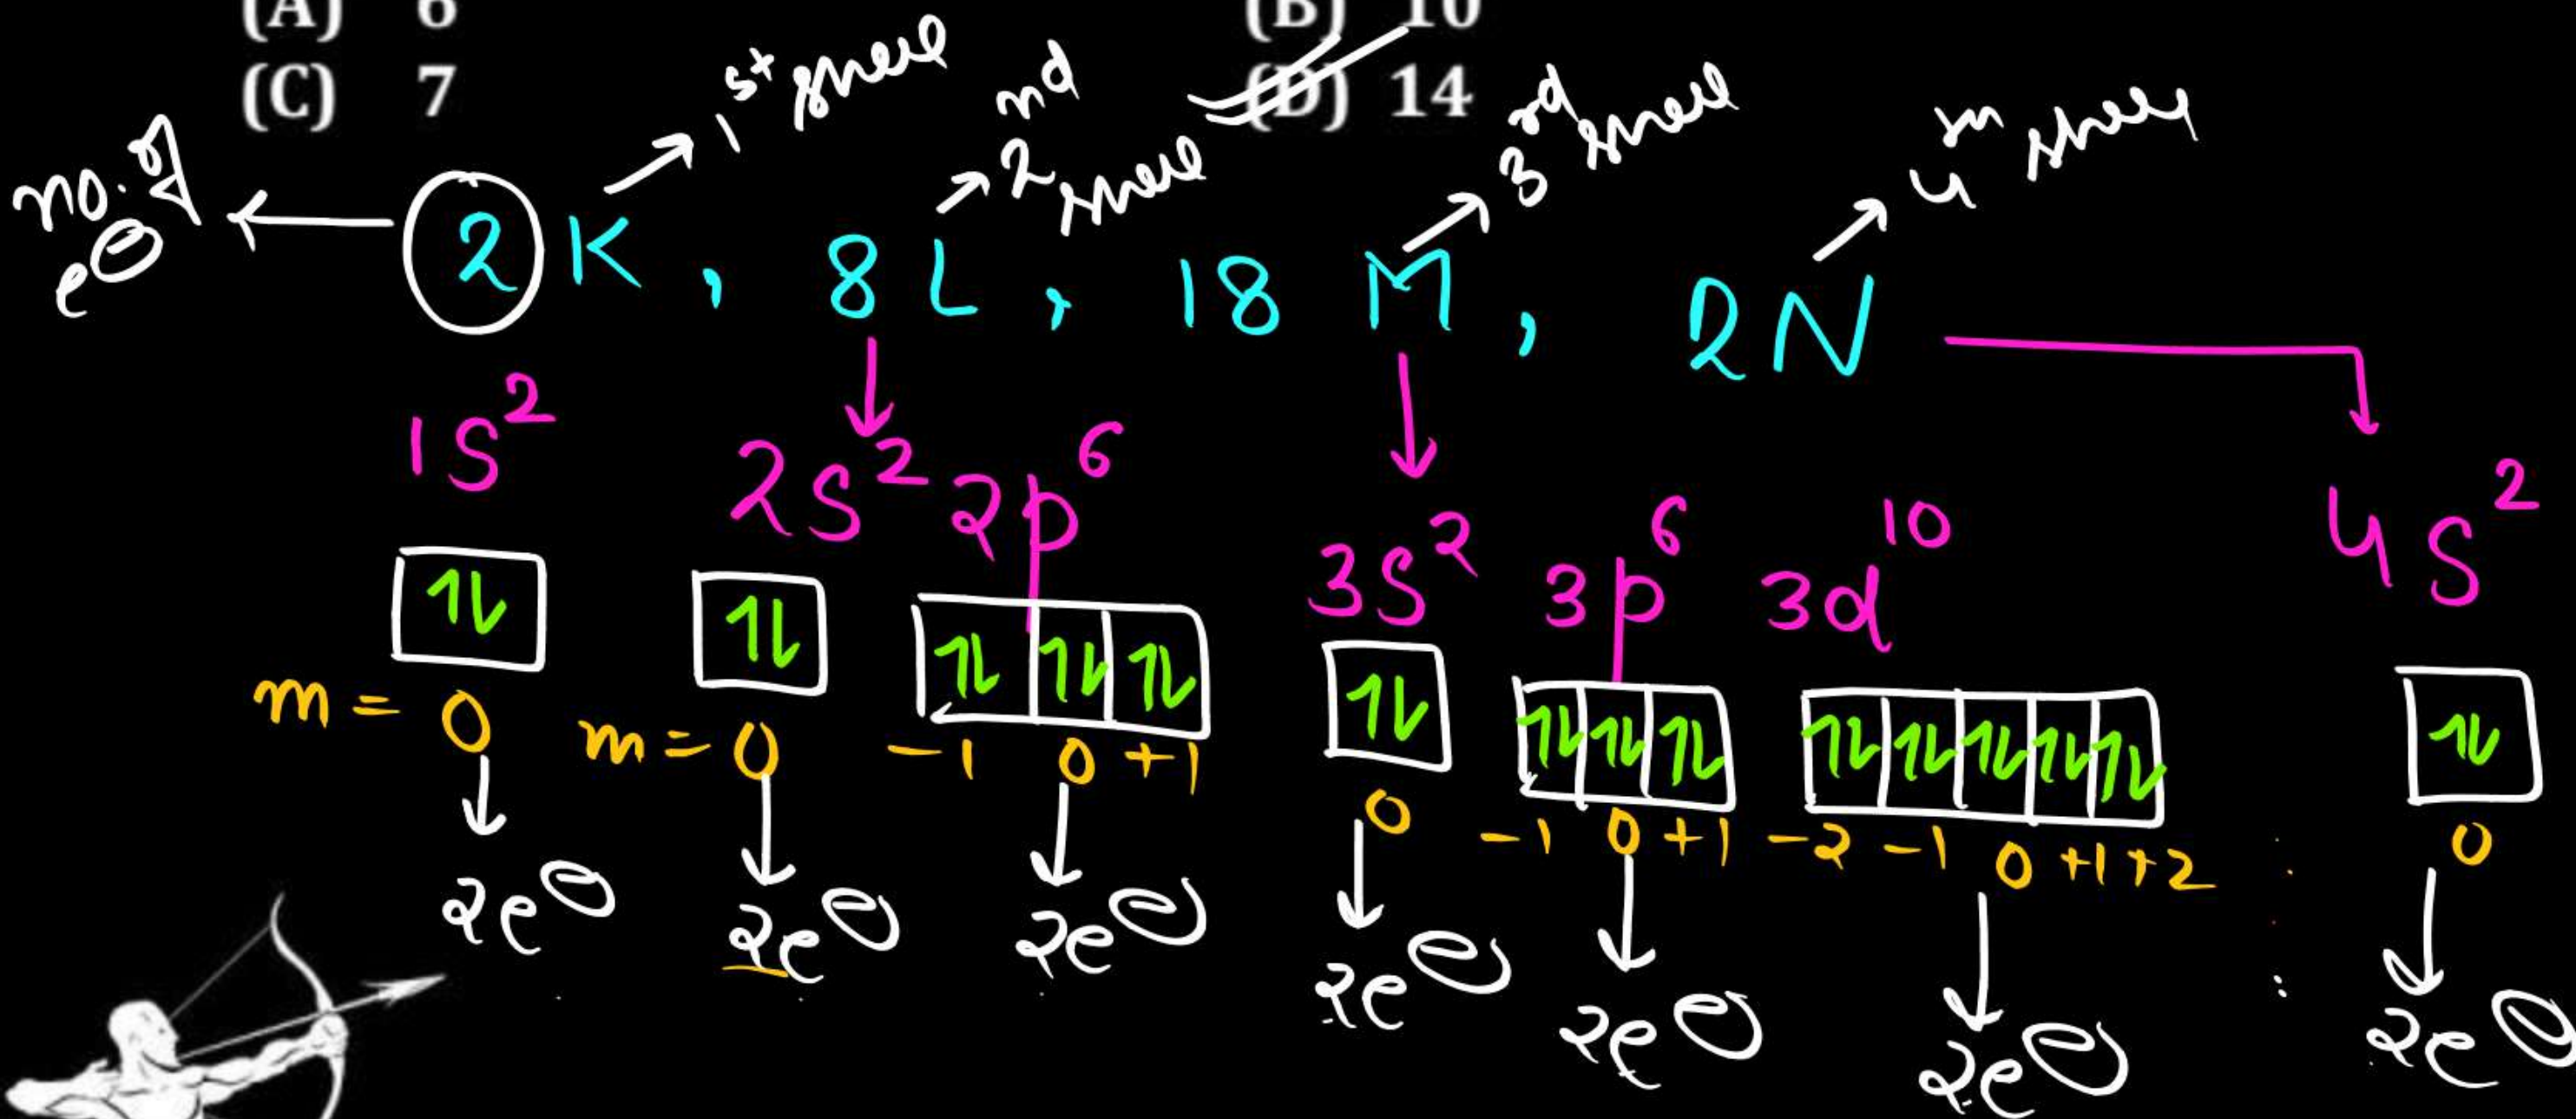 (A) 6 (B) 10
(C) 7 (D) 14
no. of e⊖ ← 2 K, 8 L, 18 M, 2 N
→ 1st shell → 2nd shell → 3rd shell → 4th shell
1s² 2s² 2p⁶ 3s² 3p⁶ 3d¹⁰ 4s²
↿⇂ ↿⇂ ↿⇂ ↿⇂ ↿⇂ ↿⇂ ↿⇂ ↿⇂ ↿⇂ ↿⇂ ↿⇂ ↿⇂ ↿⇂ ↿⇂ ↿⇂
m = 0 m = 0 -1 0 +1 0 -1 0 +1 -2 -1 0 +1 +2 0
2e⊖ 2e⊖ 2e⊖ 2e⊖ 2e⊖ 2e⊖ 2e⊖